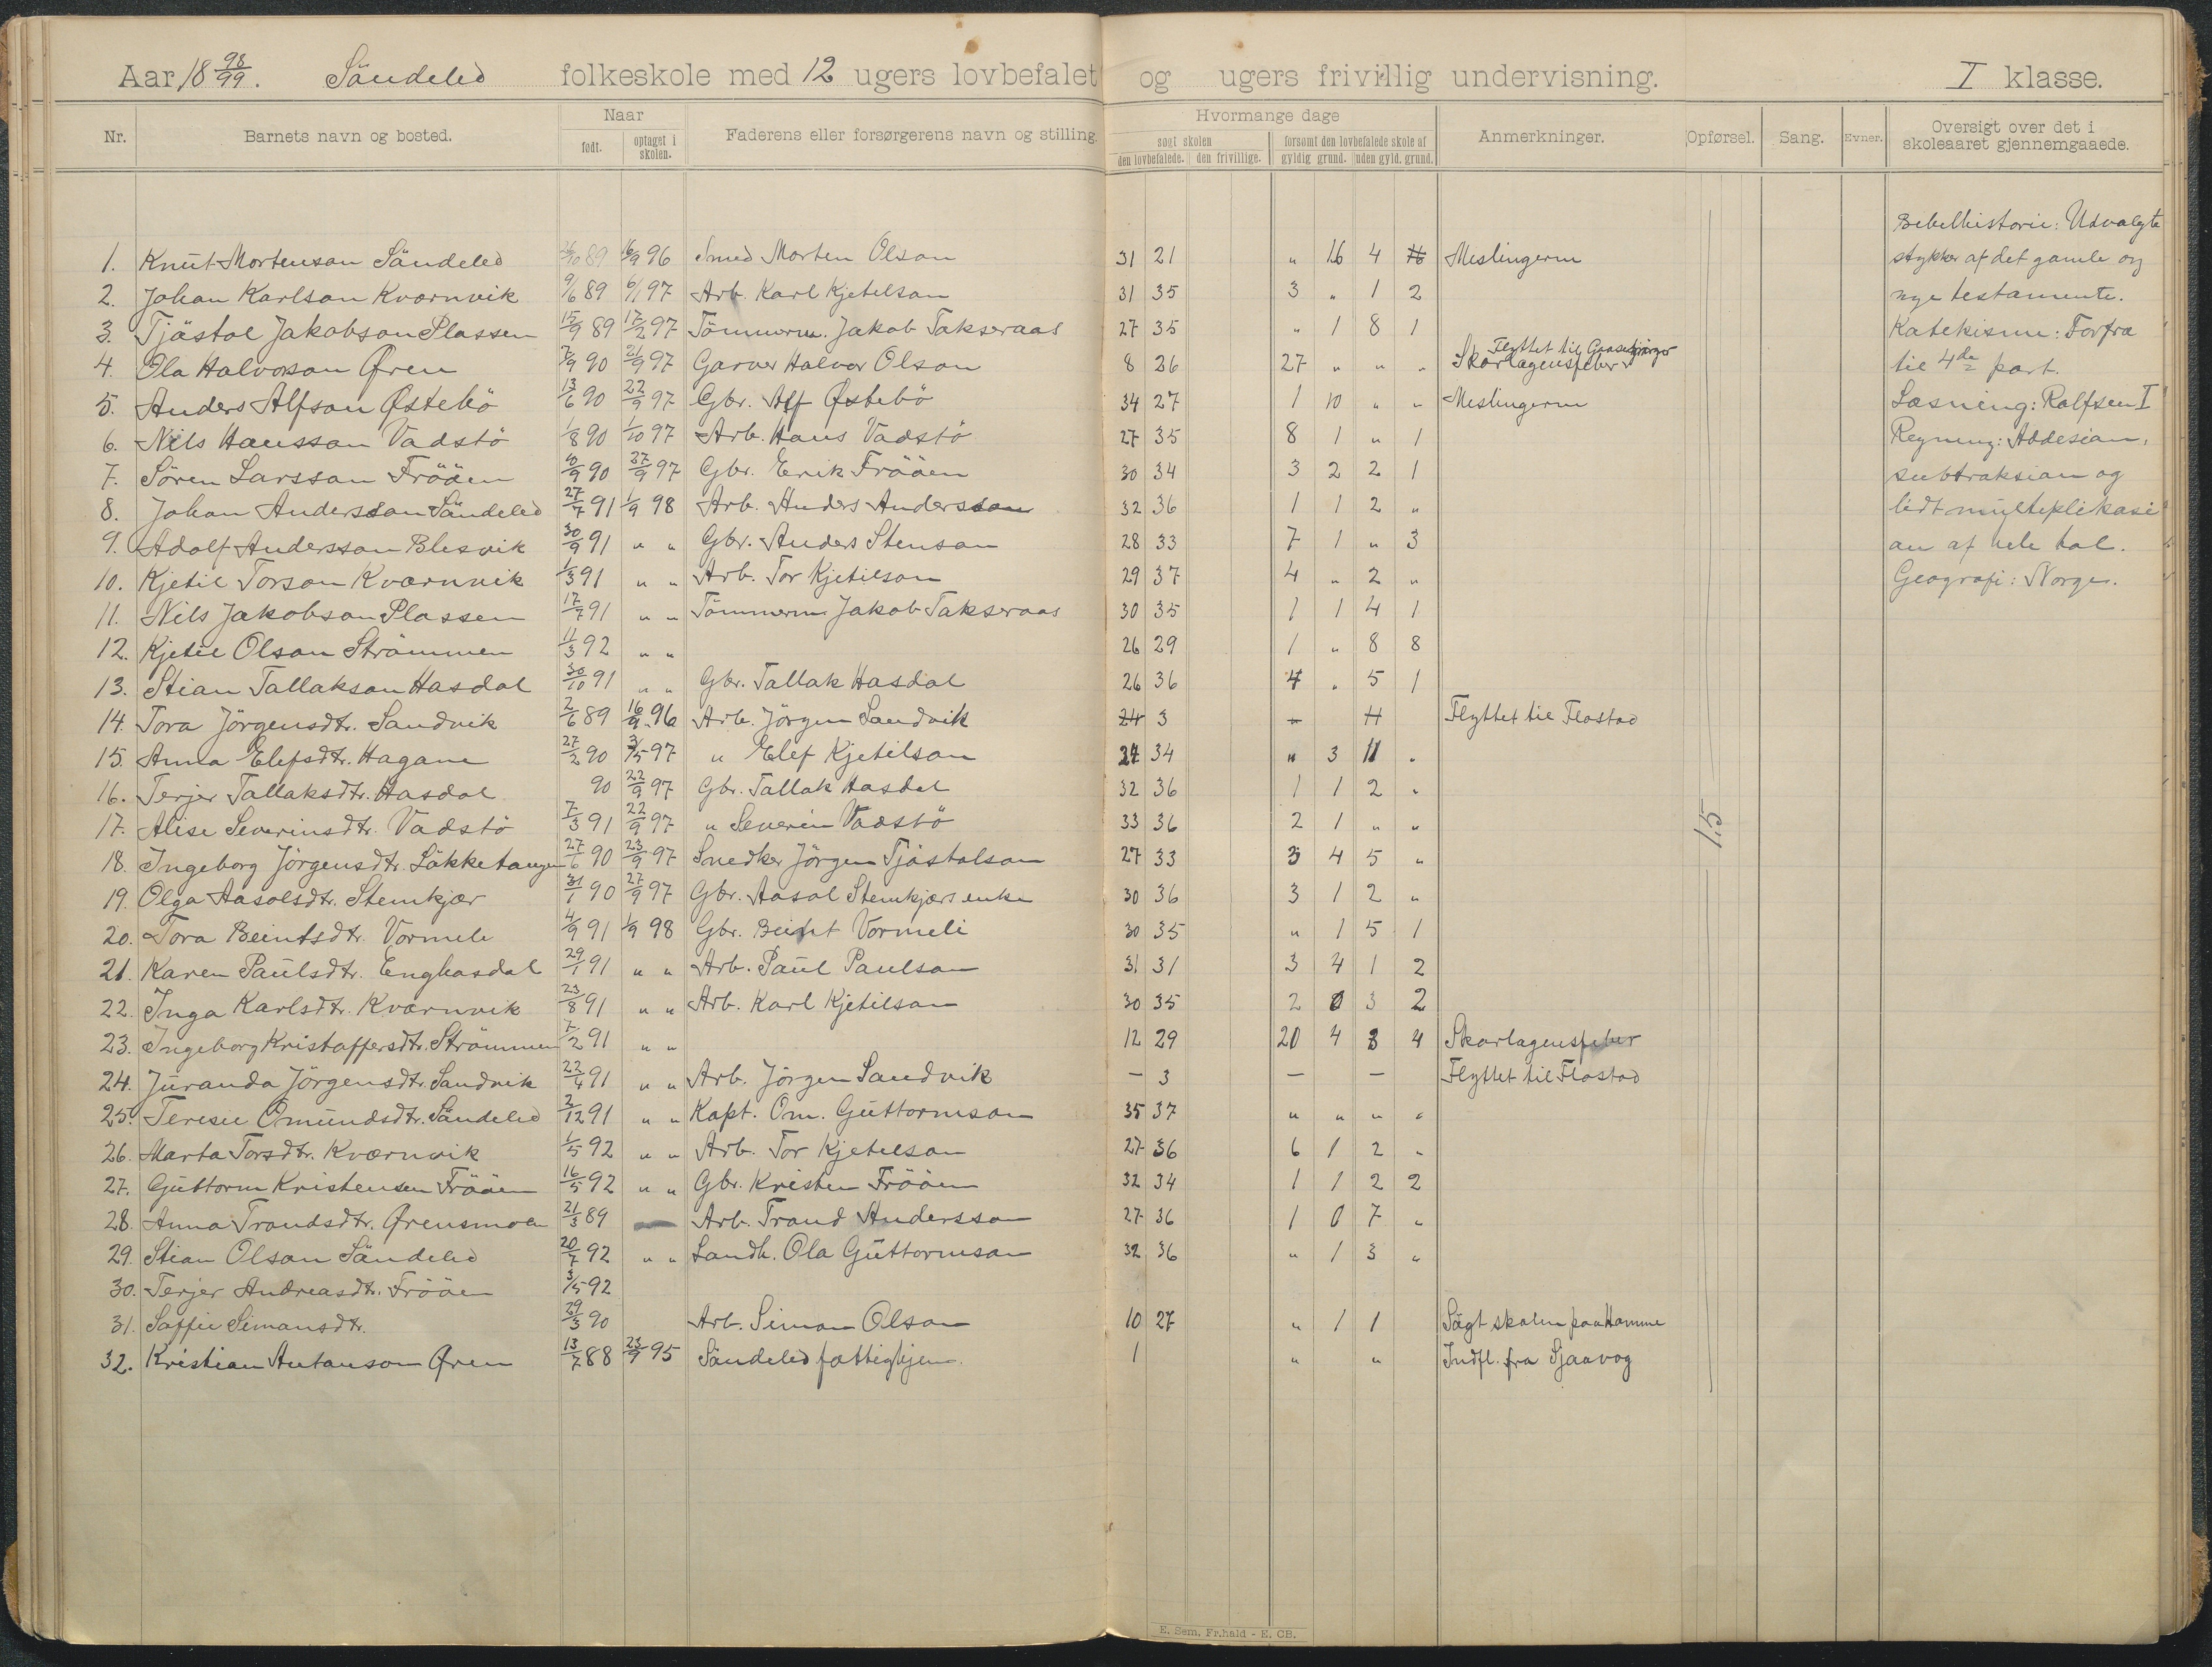 Aar 18 98/99. Söndeled folkeskole med 12 ugers lovbefalet og ugers frivillig undervisning. I klasse.
Nr. Barnets navn og bosted. Naar født. optaget i skolen. Faderens eller forsørgerens navn og stilling. Hvormange dage søgt skolen den lovbefalede. den frivillige. forsømt den lovbefalede skole af gyldig grund. uden gyld. grund. Anmerkninger. Opførsel. Sang. Evner. Oversigt over det i skoleaaret gjennemgaaede.
1. Knut Mortenson Söndeled 89 16/9 96 Smed Morten Olson 31 21 " 16 4 Meslingerne
2. Johan Karlson Kværnvik 9/6 89 6/1 97 Arb. Karl Kjetelson 31 35 3 " 1 2
3. Tjöstol Jakobson Plassen 15/9 89 17/2 97 Tömmerm. Jakob Takseraas 27 35 " 1 8 1
4. Ola Halvorson Øren 7/9 90 21/9 97 Garver Halvor Olson 8 26 27 " " " Skarlagensfeber Flyttet til
5. Anders Alfson Østebö 13/6 90 22/9 97 Gbr. Alf Østebö 34 27 1 10 " " Meslingerne
6. Nils Hansson Vadstö 1/8 90 1/10 97 Arb. Hans Vadstö 27 35 8 1 " 1
7. Sören Larsson Fröåen 90 27/9 97 Gbr. Erik Fröåen 30 34 3 2 2 1
8. Johan Andersson Söndeled 27/7 91 1/9 98 Arb. Anders Andersson 32 36 1 1 2 "
9. Adolf Andersson Blesvik 30/9 91 " " Gbr. Anders Stenson 28 33 7 1 " 3
10. Kjetil Torson Kværnvik 1/3 91 " " Arb. Tor Kjetilson 29 37 4 " 2 "
11. Nils Jakobson Plassen 17/7 91 " " Tömmerm Jakob Takseraas 30 35 1 1 4 1
12. Kjetil Olson Strömmen 11/3 92 " " 26 29 1 " 8 8
13. Stian Tallakson Hasdal 30/10 91 " " Gbr. Tallak Hasdal 26 36 4 " 5 1
14. Tora Jörgensdtr. Sandvik 2/6 89 16/9 96 Arb. Jörgen Sandvik 24 3 Flyttet til Flostad
15. Anna Elefsdtr. Hagane 27/2 90 3/5 97 " Elef Kjetilson 24 34 " 3 11 "
16. Terjer Tallaksdtr. Hasdal 90 22/9 97 Gbr. Tallak Hasdal 32 36 1 1 2 "
17. Alise Severinsdtr. Vadstö 7/3 91 22/9 97 " Severin Vadstö 33 36 2 1 " "
18. Ingeborg Jörgensdtr. Lökketangen 27/6 90 23/9 97 Snedker Jörgen Tjöstolson 27 33 3 4 5 "
19. Olga Aasolsdtr. Stemkjær 31/1 90 27/9 97 Gbr. Aasol Stemkjærs enke 30 36 3 1 2 "
20. Tora Beintsdtr. Vormeli 4/9 91 1/9 98 Gbr. Beint Vormeli 30 35 " 1 5 1
21. Karen Paulsdtr. Enghasdal 29/1 91 " " Arb. Paul Paulson 31 31 3 4 1 2
22. Inga Karlsdtr. Kvarnvik 23/8 91 " " Arb. Karl Kjetilson 30 35 2 0 3 2
23. Ingeborg Kristoffersdtr. Strömmen 7/2 91 " " 12 29 20 4 8 4 Skarlagensfeber
24. Juranda Jörgensdtr. Sandvik 22/4 91 " " Arb. Jörgen Sandvik — 3 — — Flyttet til Flostad
25. Teresie Omundsdtr. Söndeled 2/12 91 " " Kapt. Om. Guttormson 35 37 " " " "
26. Marta Torsdtr. Kværnvik 1/5 92 " " Arb. Tor Kjetelson 27 36 6 1 2 "
27. Guttorm Kristensen Fröåen 16/5 92 " " Gbr. Kristen Fröåen 32 34 1 1 2 2
28. Anna Trondsdtr. Ørensmoen 21/3 89 Arb. Trond Andersson 27 36 1 0 7 "
29. Stian Olson Söndeled 20/7 92 " " Landh. Ola Guttormson 32 36 " 1 3 "
30. Terjer Andreasdtr. Fröåen 3/5 92
31. Soffie Simonsdtr. 29/3 90 Arb. Simon Olson 10 27 " 1 1 Sögt skolen paa Hamme
32. Kristian Antonson Øren 13/7 88 23/9 95 Söndeled fattighjem. 1 " " Indfl. fra Sjaavog
15
Bibelhistorie: Udvalgte
stykker af det gamle og
nye testamente.
Katekisme: Forfra
til 4de part.
Læsning: Rolfsen I
Regning: Addesion,
subtraksion og
lidt multiplikasi
on af hele tal.
Geografi: Norge.
E. Sem, Fr.hald - E. CB.